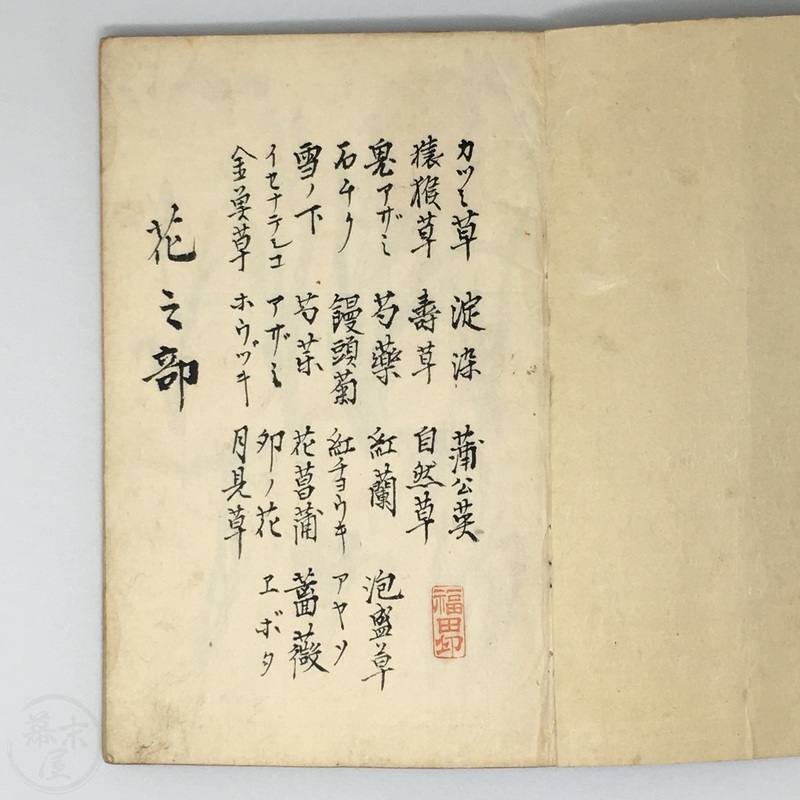 カツミ草 淀染 蒲公英
猿猴草 壽草 自然草
鬼アザミ 芍藥 紅蘭 泡盛草
石チク 饅頭菊 紅チヨウキ アヤツ
雪ノ下 芍薬 花菖蒲 薔薇
イセナデシコ アザミ 卯ノ花 ヱボタ
金 草 ホウヅキ 月見草
花之部
福田印
幕末屋